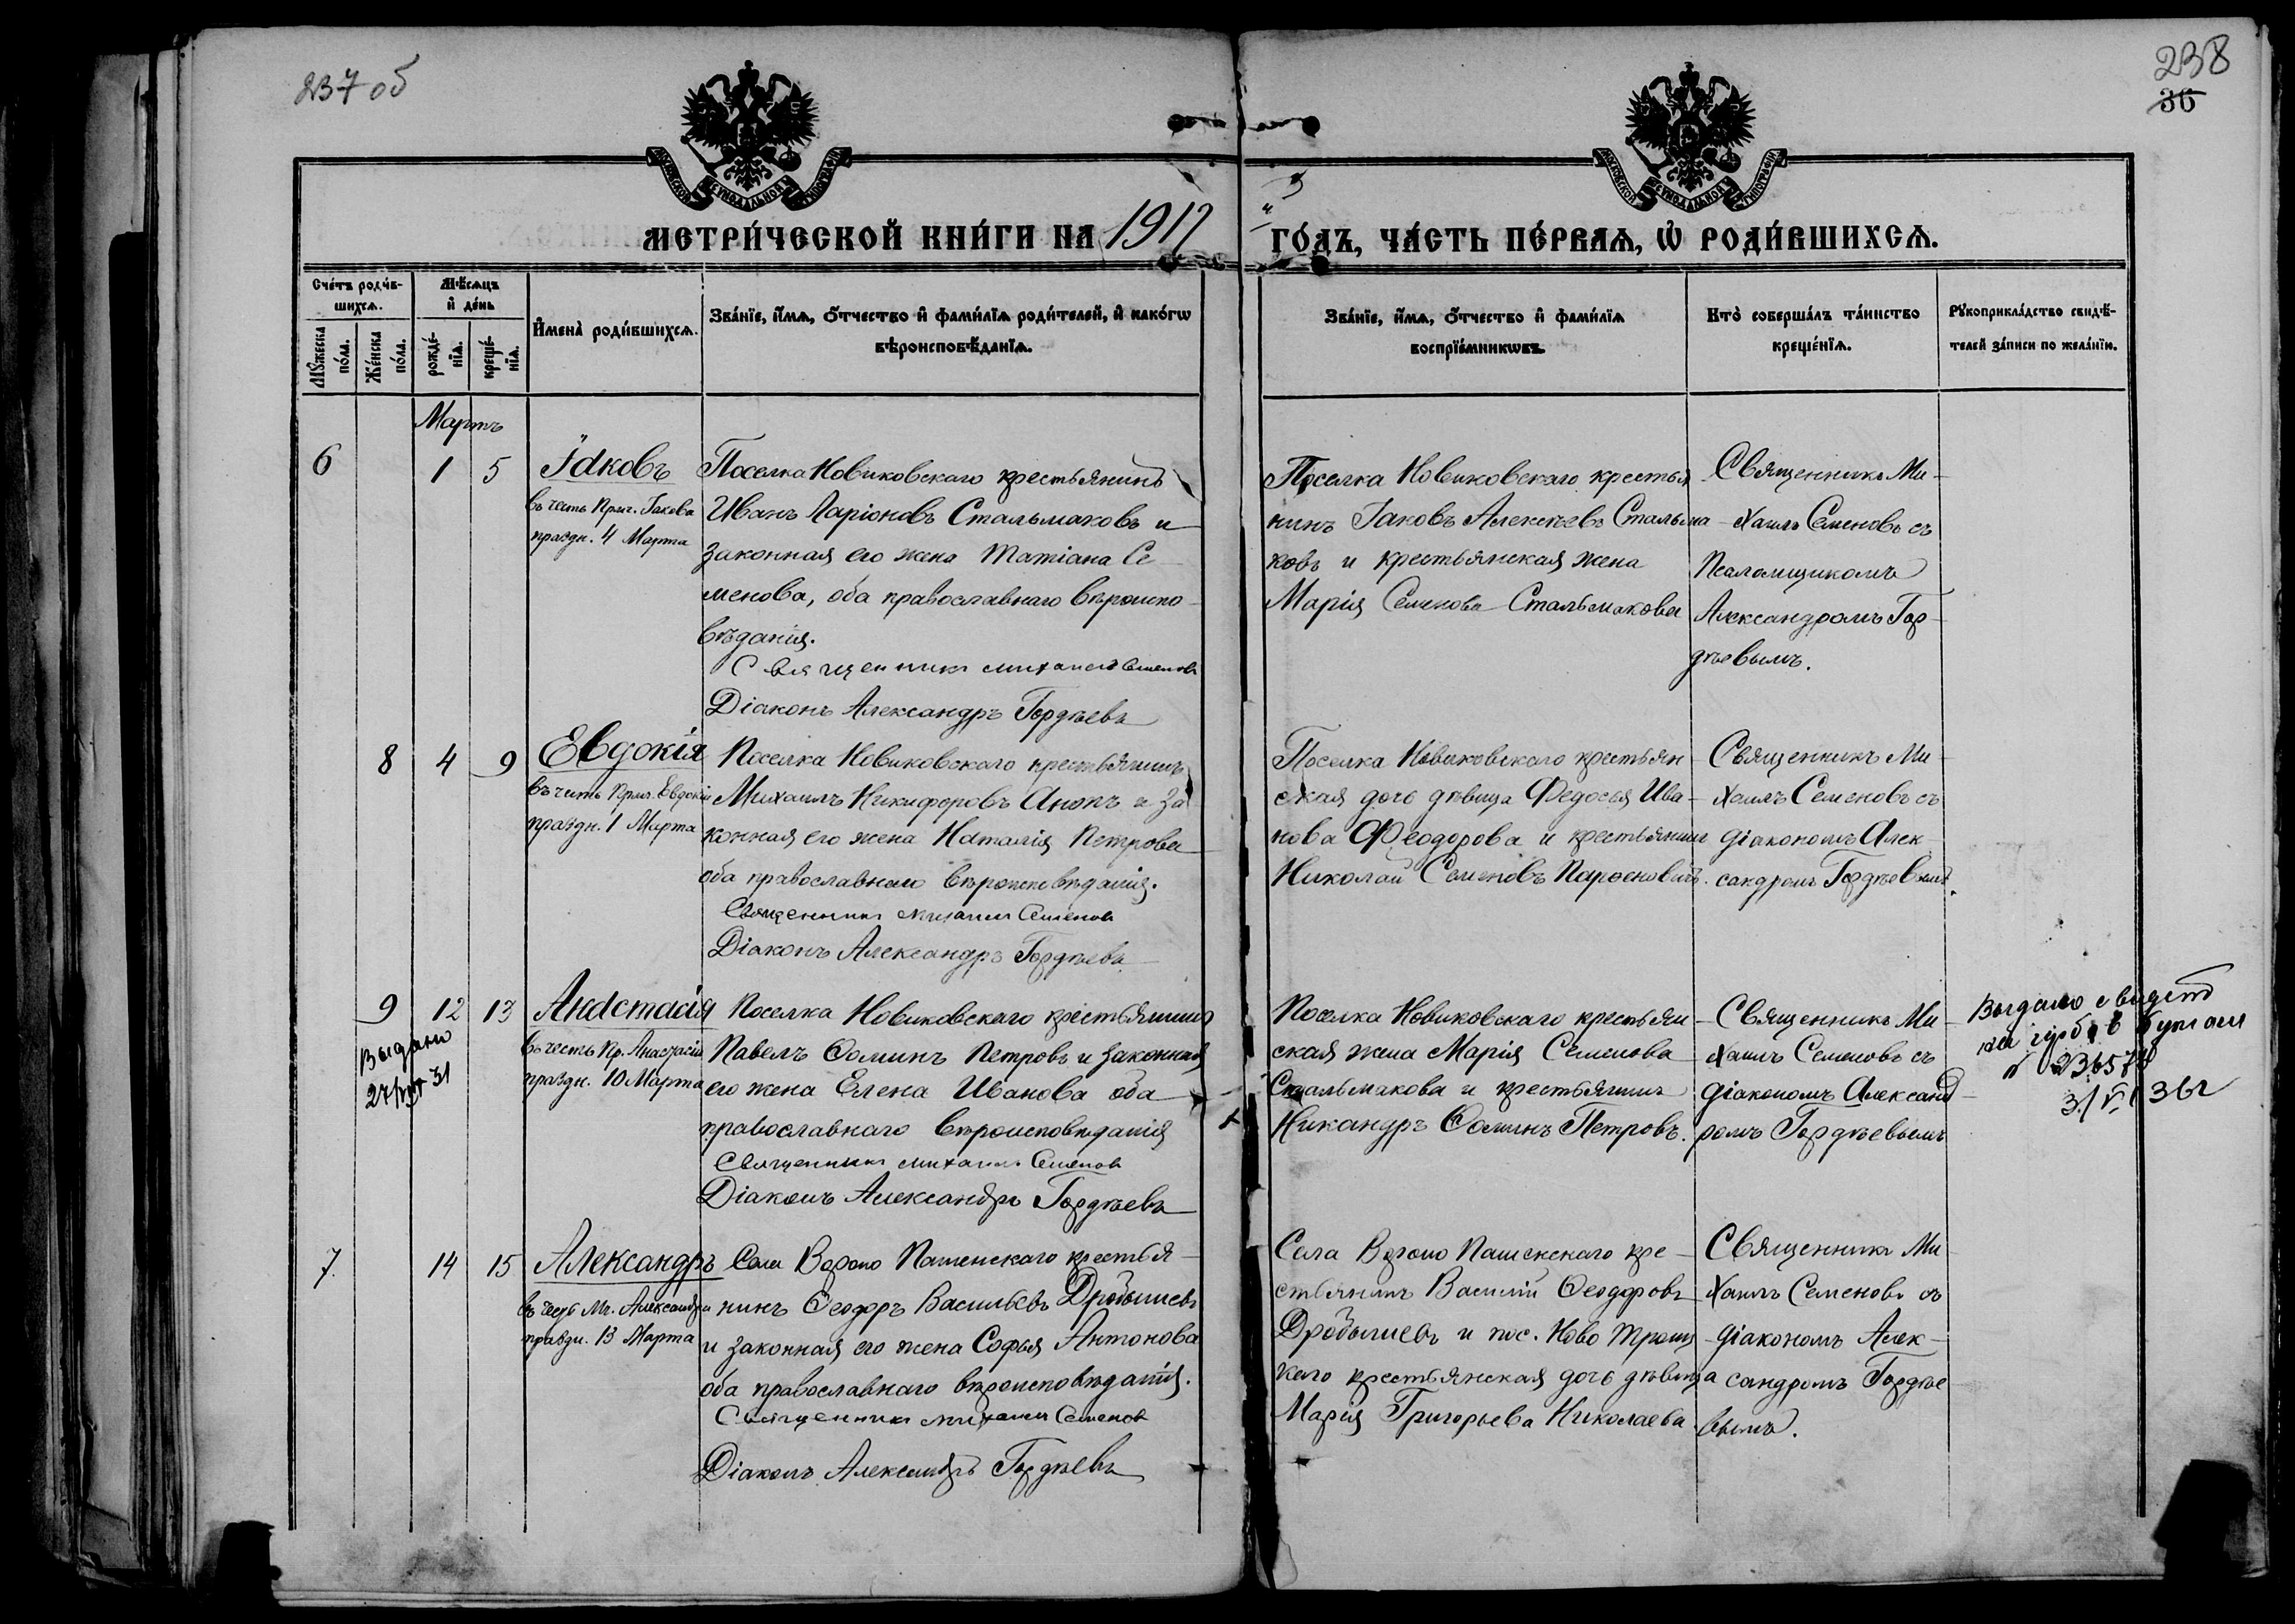 237 об
238
36
МОСКОВСКОЙ СУНОДАЛЬНОЙ ТИПОГРАФІИ
МОСКОВСКОЙ СУНОДАЛЬНОЙ ТИПОГРАФІИ
МЕТРИ́ЧЕСКОЙ КНИ́ГИ НА 1917
ГО́ДЪ, ЧА́СТЬ ПЕ́РВАѦ, Ѡ РОДИ́ВШИХСѦ.
Сче́тъ роди́в-
шихсѧ.
Мѣ́сѧцъ
и҆ де́нь
Мꙋ́жеска
по́ла.
Же́нска
по́ла.
рожде́-
нїѧ.
креще́-
нїѧ.
И҆мена̀ роди́вшихсѧ.
Зва́нїе, и҆́мѧ, ѻ҆́тчество и҆ фами́лїѧ роди́телей, и҆ како́гѡ
вѣроисповѣ́данїѧ.
Зва́нїе, и҆́мѧ, ѻ҆́тчество и҆ фами́лїѧ
воспрїе́мникѡвъ.
Кто̀ соверша́лъ та́инство
креще́нїѧ.
Рꙋкоприкла́дство свидѣ́-
телей за́писи по жела́нїю.
Мартъ
6 1 5 Іаковъ
въ честь Прмч. Іакова
праздн. 4 Марта
Поселка Новиковскаго крестьянинъ
Иванъ Ларіоновъ Стальмаковъ и
законная его жена Татіана Се-
менова, оба православнаго вѣроиспо-
вѣданія.
Священникъ Михаилъ Семеновъ
Діаконъ Александръ Гордѣевъ
Поселка Новиковскаго крестья
нинъ Іаковъ Алексѣевъ Стальма-
ковъ и крестьянская жена
Марія Семенова Стальмакова
Священникъ Ми-
хаилъ Семеновъ съ
Псаломщикомъ
Александромъ Гор-
дѣевымъ.
8 4 9 Евдокія
въ честь Прмч. Евдокіи
праздн. 1 Марта
Поселка Новиковскаго крестьянинъ
Михаилъ Никифоровъ Анонъ и за
конная его жена Наталія Петрова
оба православнаго вѣроисповѣданія.
Священникъ Михаилъ Семеновъ
Діаконъ Александръ Гордѣевъ
Поселка Новиковскаго крестьян-
ская дочь дѣвица Федосья Ива-
нова Феодорова и крестьянинъ
Николай Семеновъ
Священникъ Ми-
хаилъ Семеновъ съ
діакономъ Алек
сандромъ Гордѣевымъ.
9 12 13 Анастасія
въ честь Пр. Анастасіи
праздн. 10 Марта
Выдано
31
Поселка Новиковскаго крестьянинъ
Павелъ Ѳоминъ Петровъ и законная
его жена Елена Иванова оба
православнаго вѣроисповѣданія
Священникъ Михаилъ Семеновъ
Діаконъ Александръ Гордѣевъ
Поселка Новиковскаго крестьян-
ская жена Марія Семенова
Стальмакова и крестьянинъ
Никандръ Ѳоминъ Петровъ.
Священникъ Ми-
хаилъ Семеновъ съ
діакономъ Александ-
ромъ Гордѣевымъ
Выдано свидет
36г
7. 14 15 Александръ
въ честь Мч. Александра
праздн. 13 Марта
Села Ворошо Пашенскаго крестья-
нинъ Ѳеодоръ Васильевъ Дробышевъ
и законная его жена Софья Антонова
оба православнаго вѣроисповѣданія.
Священникъ Михаилъ Семеновъ
Діаконъ Александръ Гордѣевъ
Села Ворошо Пашенскаго кре-
стьянинъ Василій Ѳеодоровъ
Дробышевъ и пос. Ново Троиц-
каго крестьянская дочь дѣвица
Марія Григорьева Николаева
Священникъ Ми-
хаилъ Семеновъ съ
діакономъ Алек-
сандромъ Гордѣе
вымъ.